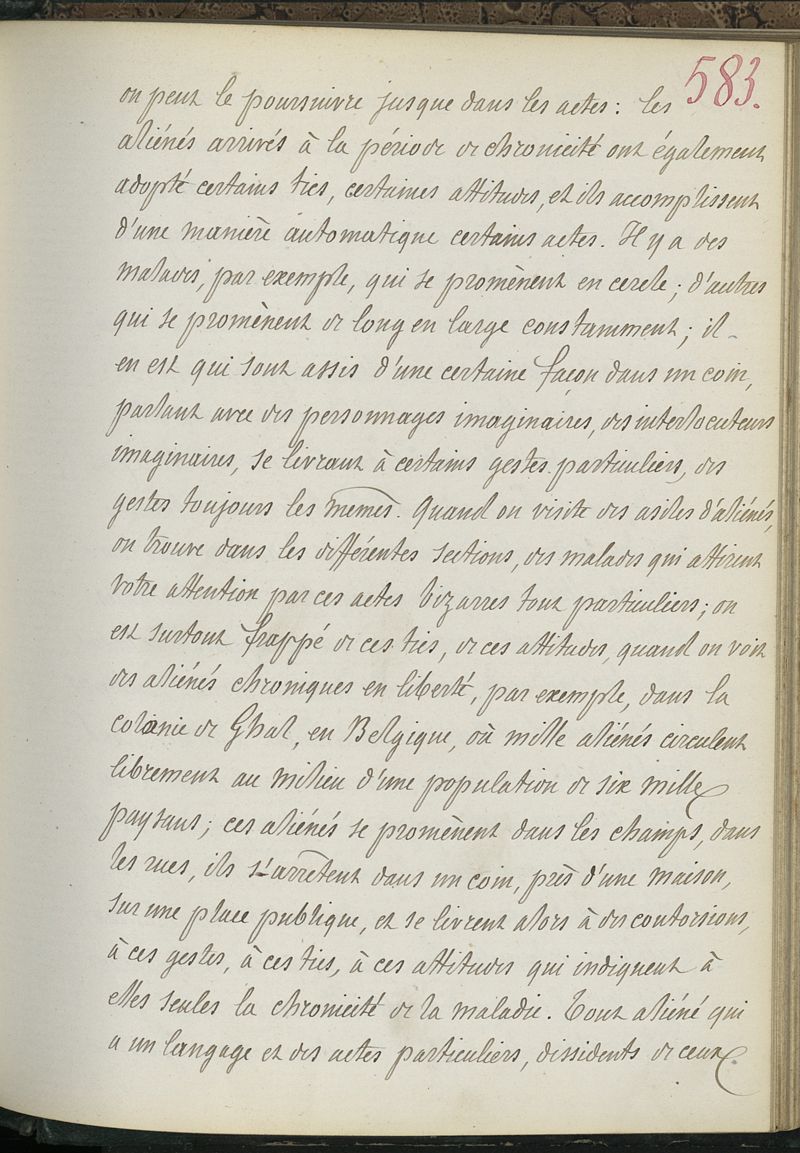 583.
on peut le poursuivre jusque dans les actes : les
aliénés arrivés à la période de chronicité ont également
adopté certains tics, certaines attitudes, et ils accomplissent
d'une manière automatique certains actes. Il y a des
malades, par exemple, qui se promènent en cercle ; d'autres
qui se promènent de long en large constamment ; il
en est qui sont assis d'une certaine façon dans un coin,
parlant avec des personnages imaginaires, des interlocuteurs
imaginaires, se livrant à certains gestes particuliers, des
gestes toujours les mêmes. Quand on visite des asiles d'aliénés,
on trouve dans les différentes sections, des malades qui attirent
votre attention par ces actes bizarres tout particuliers ; on
est surtout frappé de ces tics, de ces attitudes, quand on voit
des aliénés chroniques en liberté, par exemple, dans la
colonie de Ghal, en Belgique, où mille aliénés circulent
librement au milieu d'une population de six mille
paysans ; ces aliénés se promènent dans les champs, dans
les rues, ils s'arrêtent dans un coin, près d'une maison,
sur une place publique, et se livrent alors à des contorsions,
à ces gestes, à ces tics, à ces attitudes qui indiquent à
elles seules la chronicité de la maladie. Tout aliéné qui
a un langage et des actes particuliers, dissidents de ceux